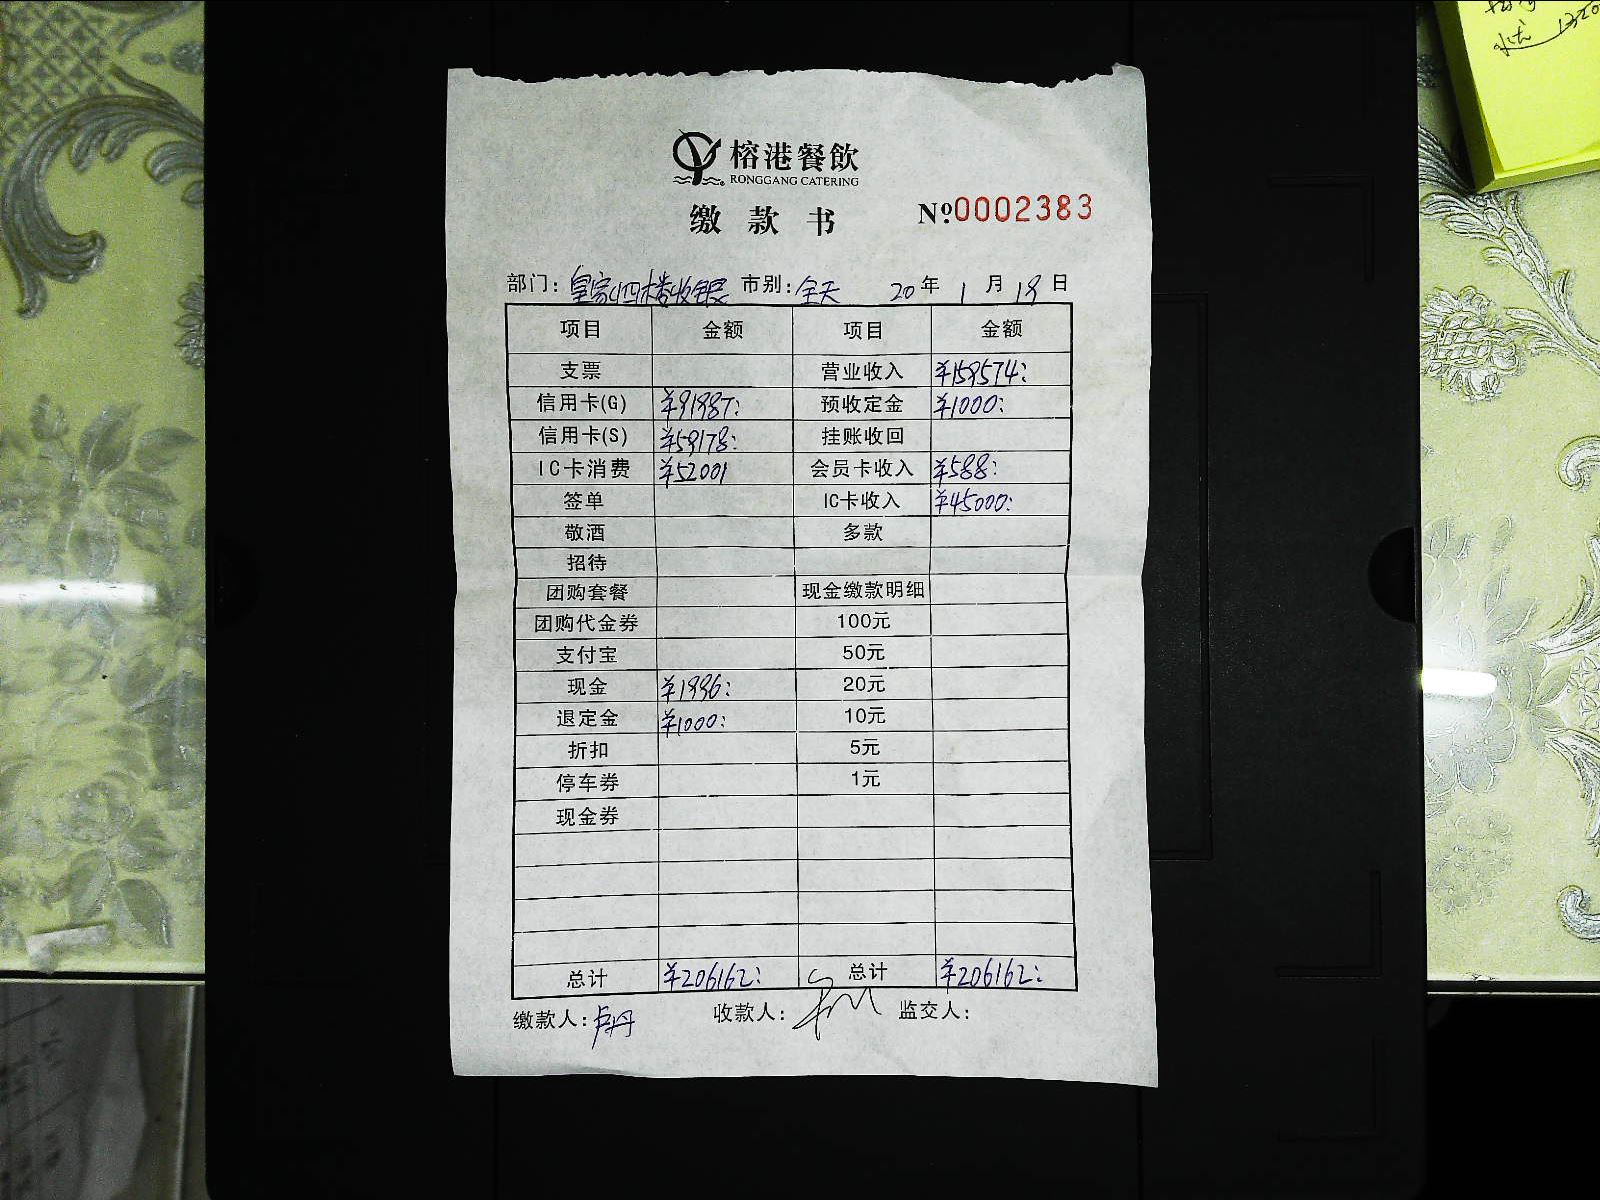 榕港餐飲
RONGGANG CATERING
缴款书 №0002383
部门：皇家四楼收银 市别：全天 20年1月19日
项目 金额 项目 金额
支票 营业收入 ¥159574:
信用卡(G) ¥91987: 预收定金 ¥1000:
信用卡(S) ¥59178: 挂账收回
IC卡消费 ¥52001 会员卡收入 ¥588:
签单 IC卡收入 ¥45000:
敬酒 多款
招待
团购套餐 现金缴款明细
团购代金券 100元
支付宝 50元
现金 ¥1996: 20元
退定金 ¥1000: 10元
折扣 5元
停车券 1元
现金券
总计 ¥206162: 总计 ¥206162:
缴款人：卢丹 收款人： 监交人：